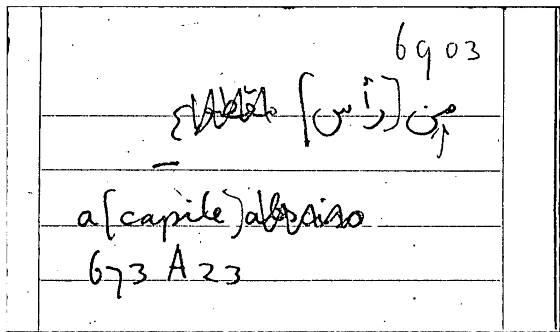 6903
من [رأس]
a [capite]
673 A 23